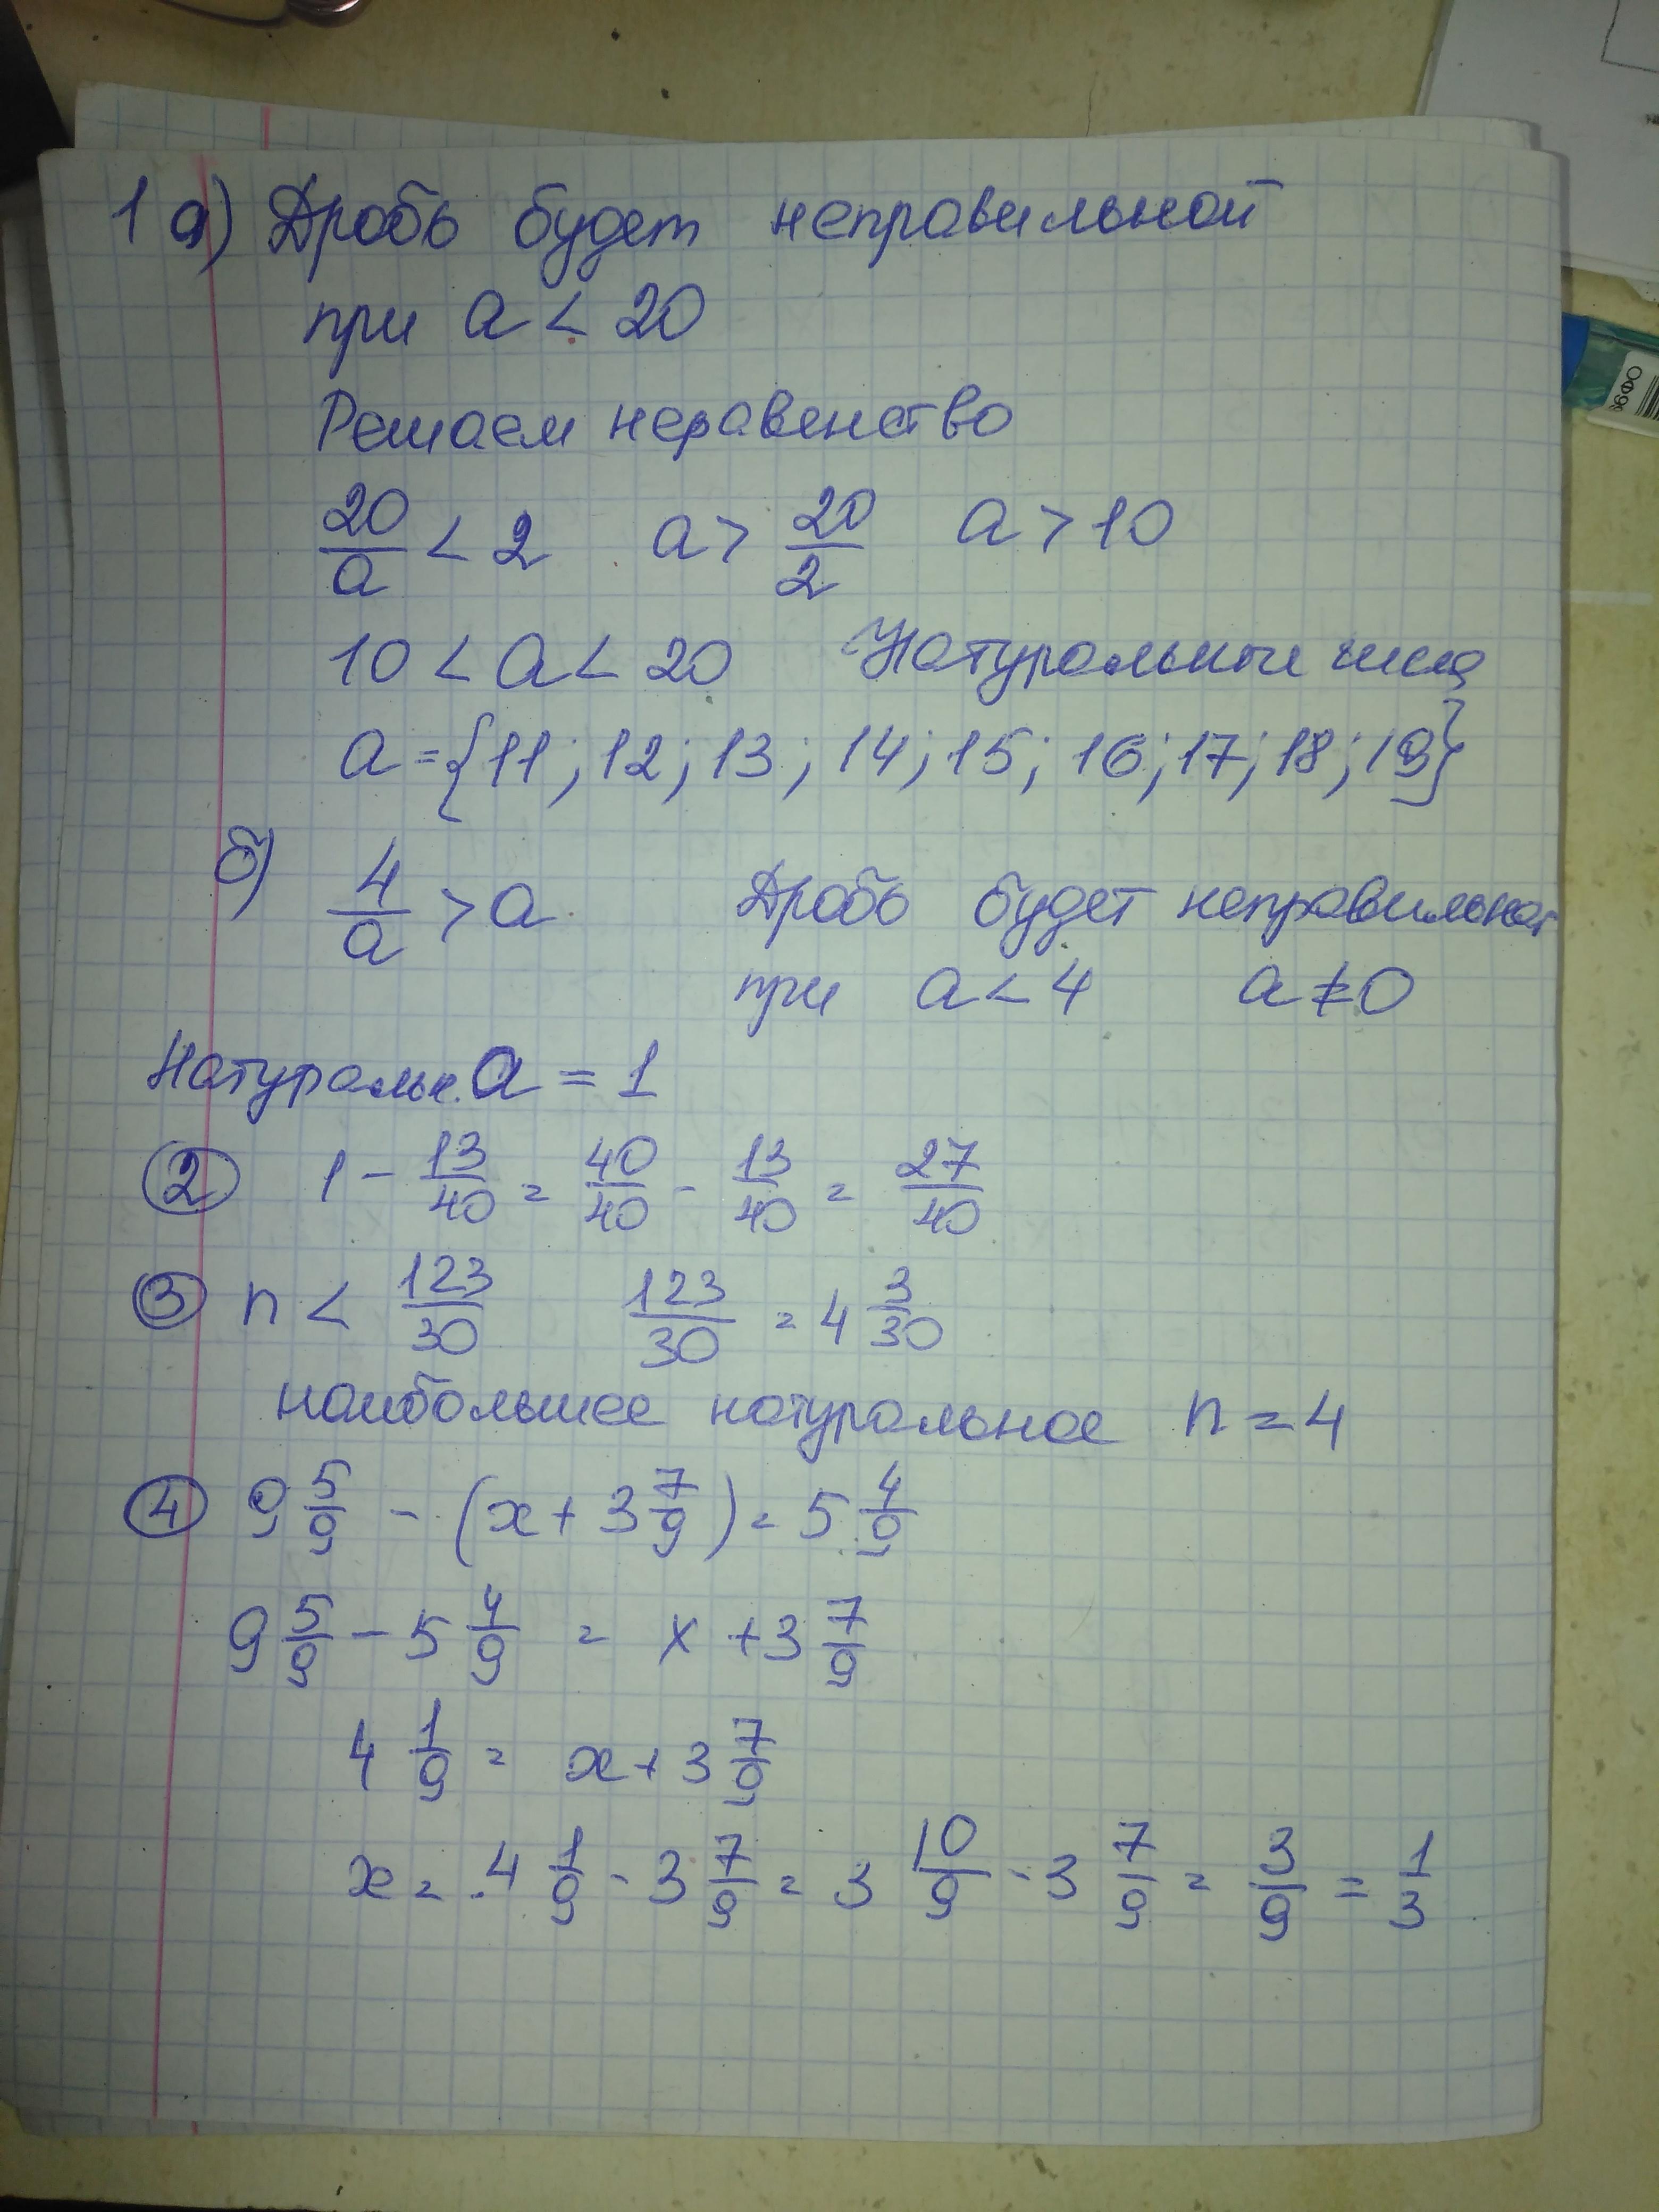 1 а) Дробь будет неправильной
при a < 20
Решаем неравенство
20/a < 2 a > 20/2 a > 10
10 < a < 20 Натуральные числа
a = {11; 12; 13; 14; 15; 16; 17; 18; 19}
б) 4/a > a Дробь будет неправильная
при a < 4 a ≠ 0
Натуральн. a = 1
② 1 - 13/40 = 40/40 - 13/40 = 27/40
③ n < 123/30 123/30 = 4 3/30
наибольшее натуральное n = 4
④ 9 5/9 - (x + 3 7/9) = 5 4/9
9 5/9 - 5 4/9 = x + 3 7/9
4 1/9 = x + 3 7/9
x = 4 1/9 - 3 7/9 = 3 10/9 - 3 7/9 = 3/9 = 1/3